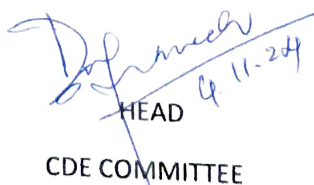 4.11.24
HEAD
CDE COMMITTEE